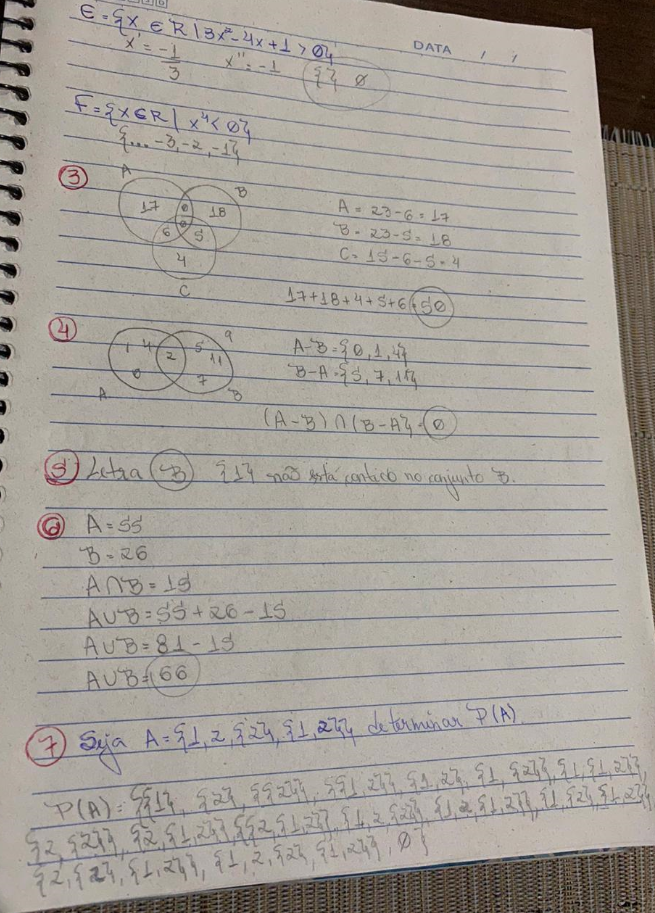 E = {x ∈ R | 3x² - 4x + 1 > 0}
DATA / /
x' = -1/3 x'' = -1 { } ∅
F = {x ∈ R | x⁴ < 0}
{... -3, -2, -1}
3
A
B
17 0 18
0
6 5
4
C
A = 23 - 6 = 17
B = 23 - 5 = 18
C = 15 - 6 - 5 = 4
17 + 18 + 4 + 5 + 6 = 50
4
1 4 2 5 9
11
0 7
A B
A - B = {0, 1, 4}
B - A = {5, 7, 11}
(A - B) ∩ (B - A) = ∅
5 Letra B {1} não está contido no conjunto B.
6 A = 55
B = 26
A ∩ B = 15
A ∪ B = 55 + 26 - 15
A ∪ B = 81 - 15
A ∪ B = 66
7 Seja A = {1, 2, {2}, {1, 2}} determinar P(A).
P(A) = {{1}, {2}, {{2}}, {{1, 2}}, {1, 2}, {1, {2}}, {1, {1, 2}},
{2, {2}}, {2, {1, 2}}, {{2, {1, 2}}, {1, 2, {2}}, {1, 2, {1, 2}}, {1, {2}, {1, 2}},
{2, {2}, {1, 2}}, {1, 2, {2}, {1, 2}}, ∅}